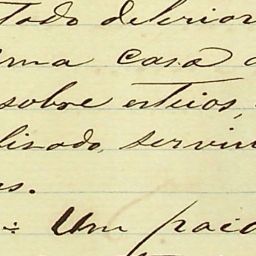 tado deterior
uma casa d
sobre esteios,
lisado, servin
as.
: Um paio